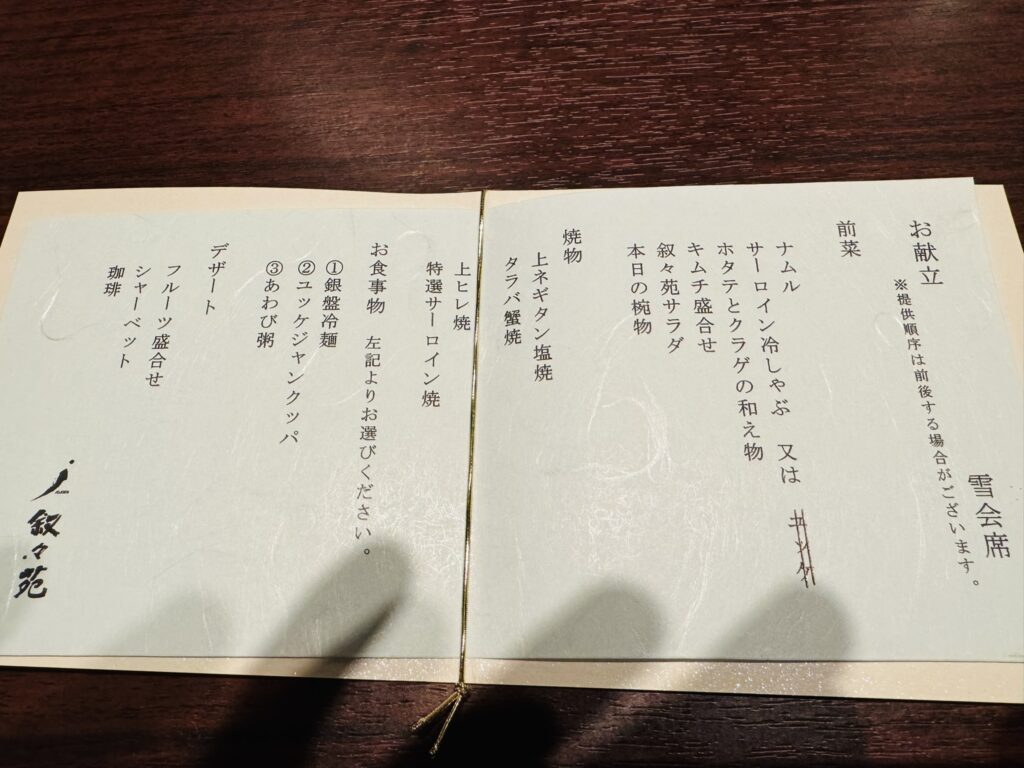 雪会席
お献立
※提供順序は前後する場合がございます。
前菜
ナムル
サーロイン冷しゃぶ 又は ユッケ
ホタテとクラゲの和え物
キムチ盛合せ
叙々苑サラダ
本日の椀物
焼物
上ネギタン塩焼
タラバ蟹焼
上ヒレ焼
特選サーロイン焼
お食事物 左記よりお選びください。
①銀盤冷麺
②ユッケジャンクッパ
③あわび粥
デザート
フルーツ盛合せ
シャーベット
珈琲
叙々苑